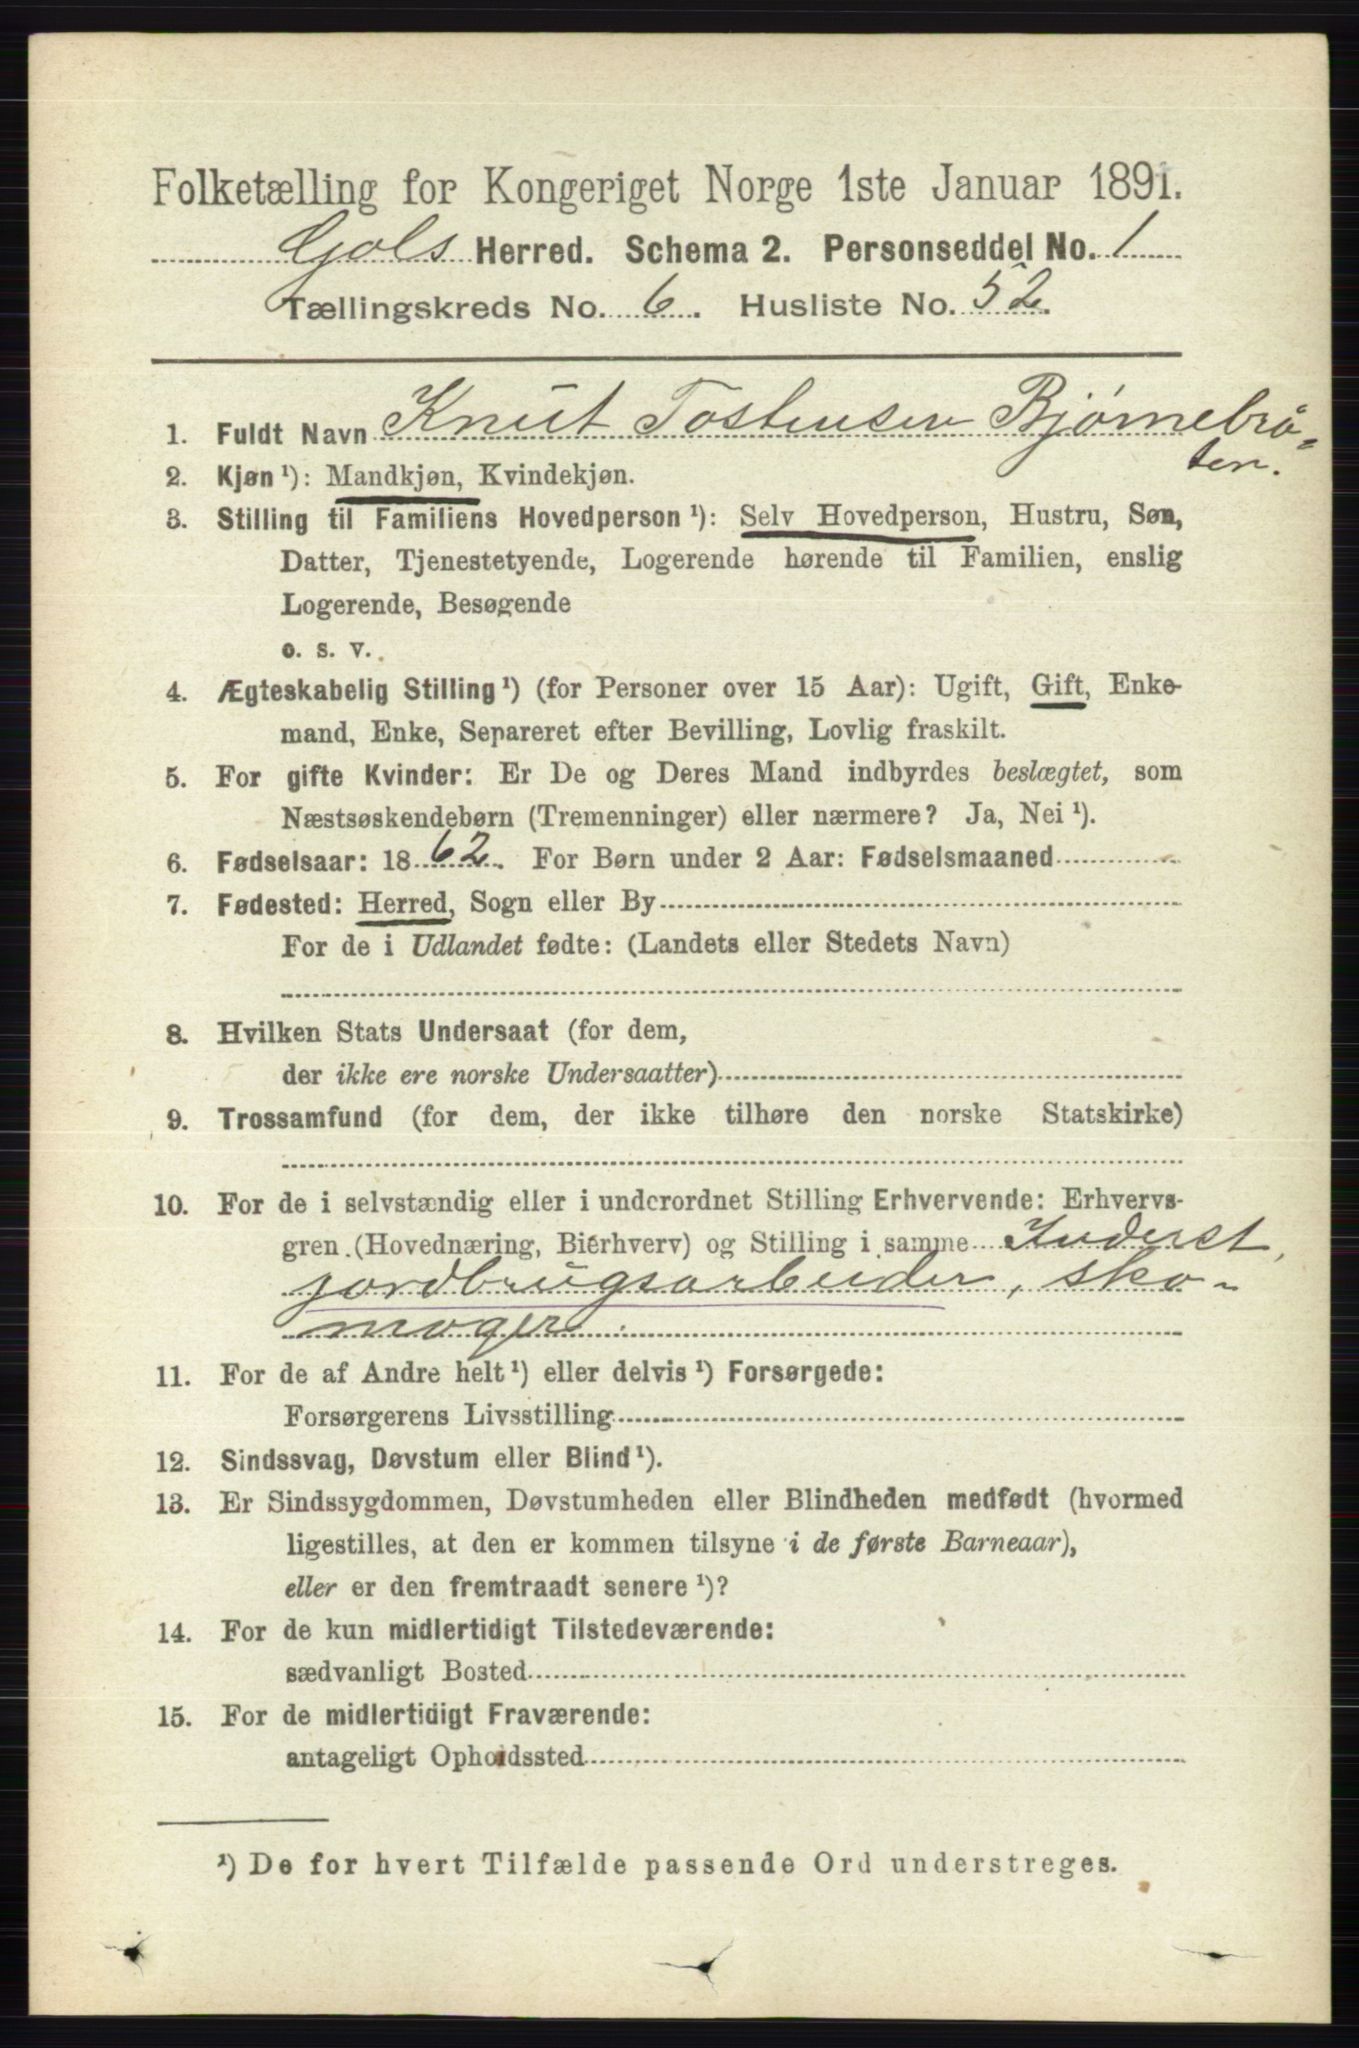 Folketælling for Kongeriget Norge 1ste Januar 1891.
Gols Herred. Schema 2. Personseddel No. 1
Tællingskreds No. 6. Husliste No. 52.
1. Fuldt Navn Knut Tostensen Bjørnebrå=
ten.
2. Kjøn¹): Mandkjøn, Kvindekjøn.
3. Stilling til Familiens Hovedperson¹): Selv Hovedperson, Hustru, Søn,
Datter, Tjenestetyende, Logerende hørende til Familien, enslig
Logerende, Besøgende
o. s. v.
4. Ægteskabelig Stilling¹) (for Personer over 15 Aar): Ugift, Gift, Enke-
mand, Enke, Separeret efter Bevilling, Lovlig fraskilt.
5. For gifte Kvinder: Er De og Deres Mand indbyrdes beslægtet, som
Næstsøskendebørn (Tremenninger) eller nærmere? Ja, Nei¹).
6. Fødselsaar: 1862. For Børn under 2 Aar: Fødselsmaaned
7. Fødested: Herred, Sogn eller By
For de i Udlandet fødte: (Landets eller Stedets Navn)
8. Hvilken Stats Undersaat (for dem,
der ikke ere norske Undersaatter)
9. Trossamfund (for dem, der ikke tilhøre den norske Statskirke)
10. For de i selvstændig eller i underordnet Stilling Erhvervende: Erhvervs-
gren (Hovednæring, Bierhverv) og Stilling i samme Inderst,
jordbrugsarbeider, sko-
mager.
11. For de af Andre helt¹) eller delvis¹) Forsørgede:
Forsørgerens Livsstilling
12. Sindssvag, Døvstum eller Blind¹).
13. Er Sindssygdommen, Døvstumheden eller Blindheden medfødt (hvormed
ligestilles, at den er kommen tilsyne i de første Barneaar),
eller er den fremtraadt senere¹)?
14. For de kun midlertidigt Tilstedeværende:
sædvanligt Bosted
15. For de midlertidigt Fraværende:
antageligt Opholdssted
¹) De for hvert Tilfælde passende Ord understreges.